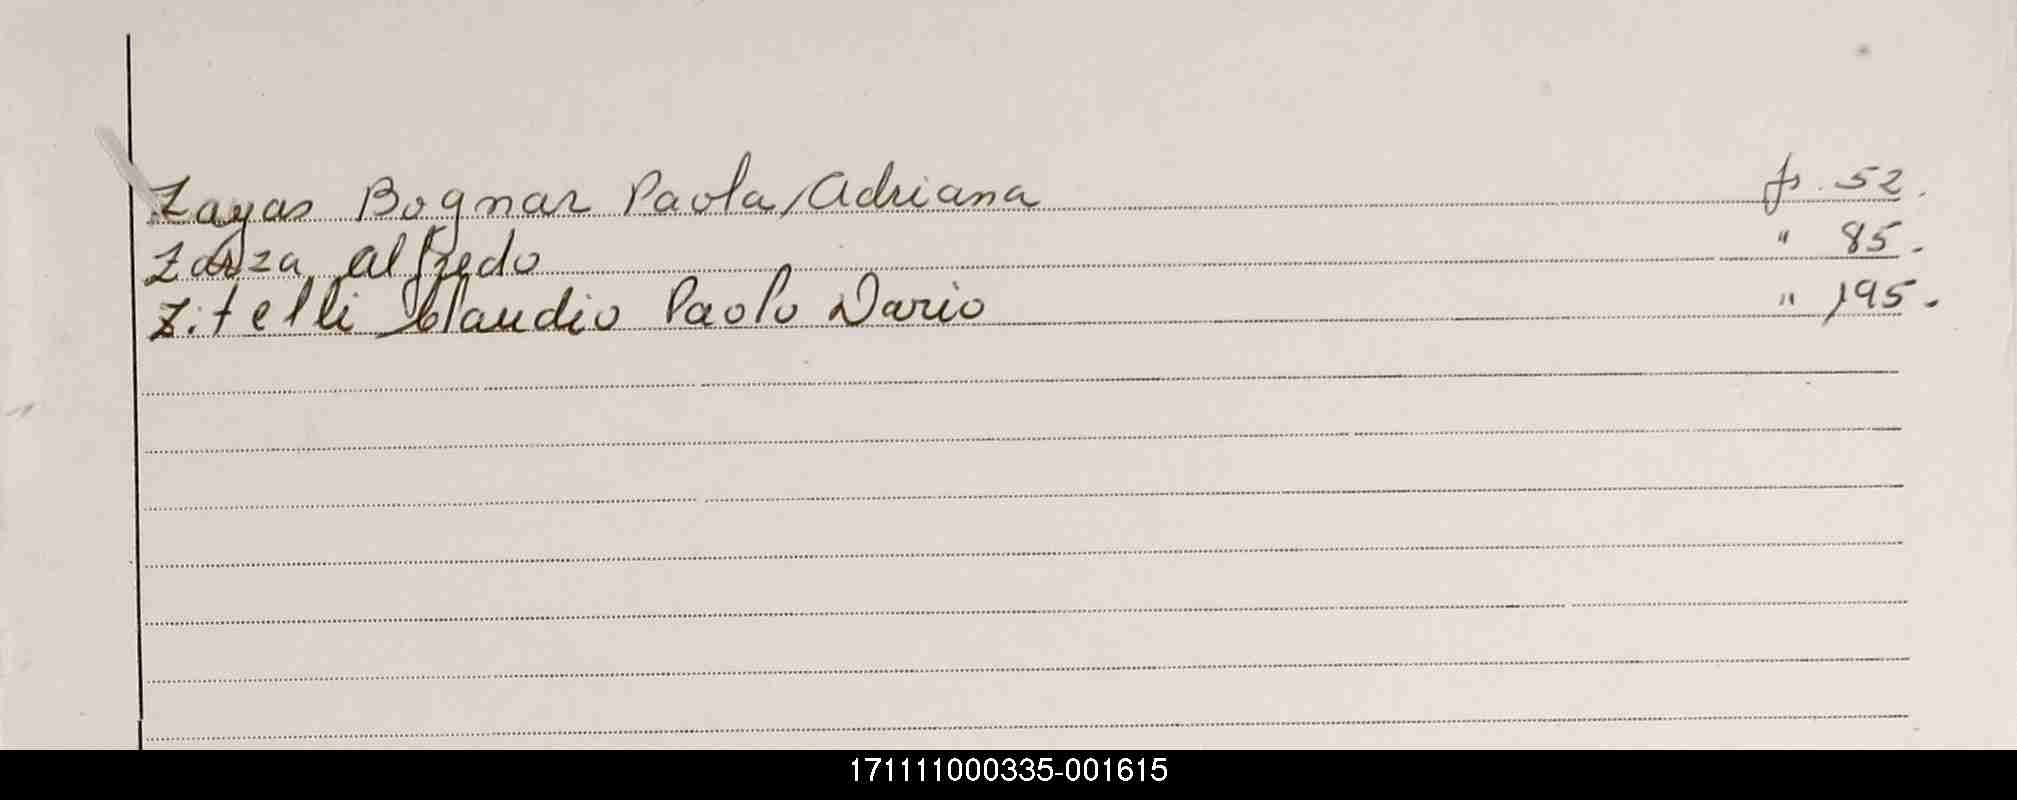 Zayas Bognar Paola Adriana fs. 52.
Zarza Alfredo " 85.
Zitelli Claudio Paolo Dario " 195.
171111000335-001615